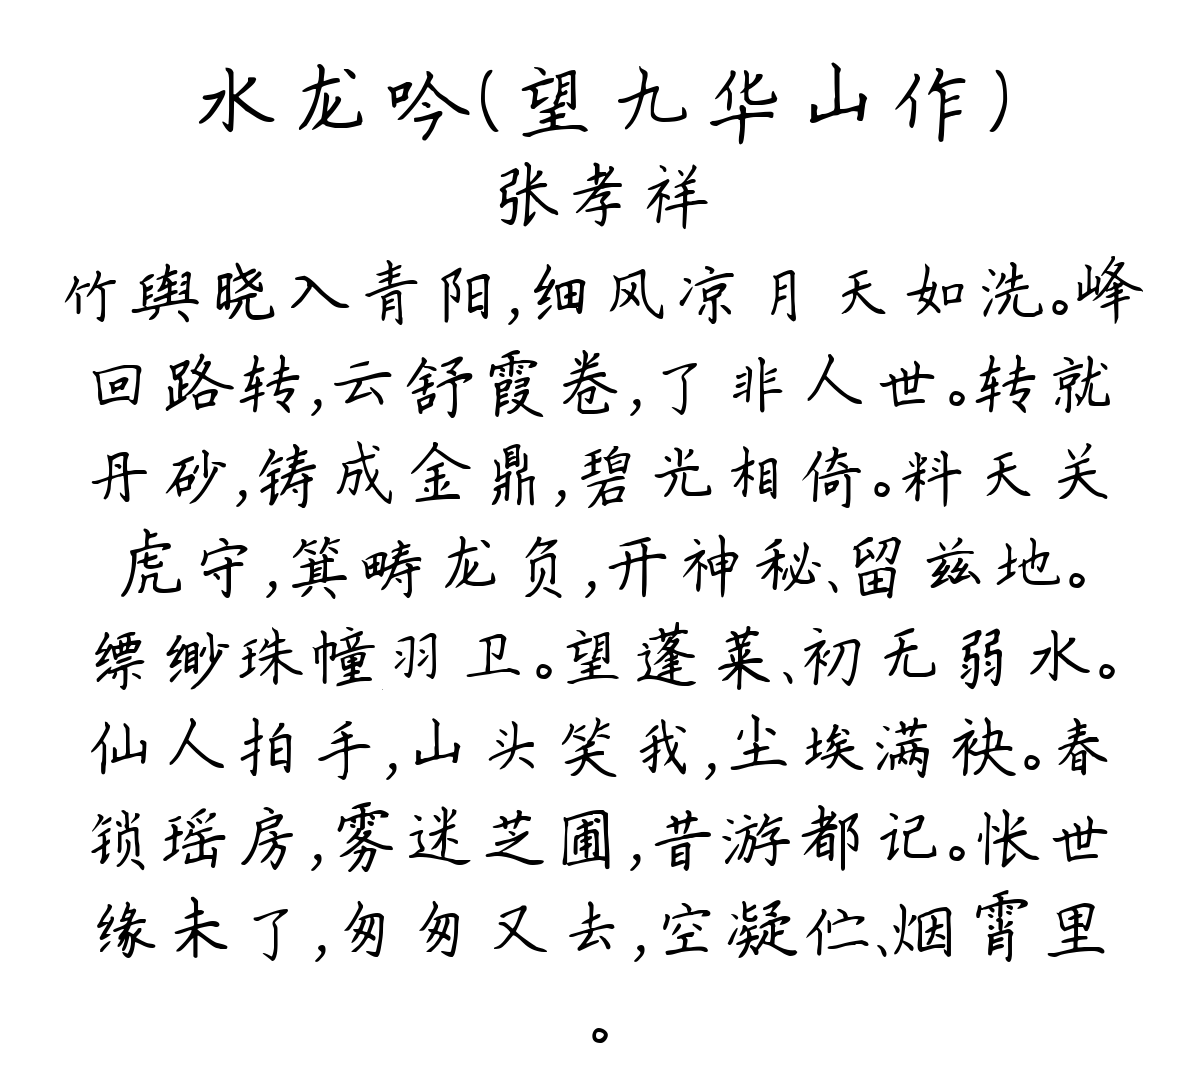 水龙吟(望九华山作)
张孝祥
竹舆晓入青阳,细风凉月天如洗。峰
回路转,云舒霞卷,了非人世。转就
丹砂,铸成金鼎,碧光相倚。料天关
虎守,箕畴龙负,开神秘、留兹地。
缥缈珠幢羽卫。望蓬莱、初无弱水。
仙人拍手,山头笑我,尘埃满袂。春
锁瑶房,雾迷芝圃,昔游都记。怅世
缘未了,匆匆又去,空凝伫、烟霄里
。